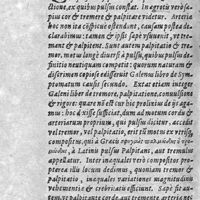 ctione, ex quibus pulsus constat. In egrotis verò sæ-
pius cor & tremere & palpitare videtur. Arteria
hoc non ita explicuit ostendunt, causam posteà de
clarabimus: tamen & ipsis sæpè vsuuenit, vt tre-
mant & palpitent. Sunt autem palpitatio & tre-
mor, motus longè diuersi à pulsu, quibus pulsus de-
finitio neutiquam competit: quorum naturam &
discrimen copiosè edisseruit Galenus libro de Sym-
ptomatum causis secundo. Extat etiam integer
Galeni liber de tremore, palpitatione, conuulsione
& rigore: quare nõ est cur hîc prolixius de ijs aga-
mus: hoc dixisse sufficiat, dum ad motum cordis &
arteriarum proprium, qui pulsus dicitur, accedit
vel tremor, vel palpitatio, erit ille motus ex vtrisq;
compositus, qui à Græcis
à Latinis pulsus Palpitans, aut tremulus
appellatur. Inter inæquales verò compositos pro-
pterea illi locum dedimus, quoniam tremor &
palpitatio, inæquales variationes magnitudinis
vehementiæ & crebritatis efficiunt. Sæpè fit au-
tem, vt palpitante corde aut tremente, arteriæ nec